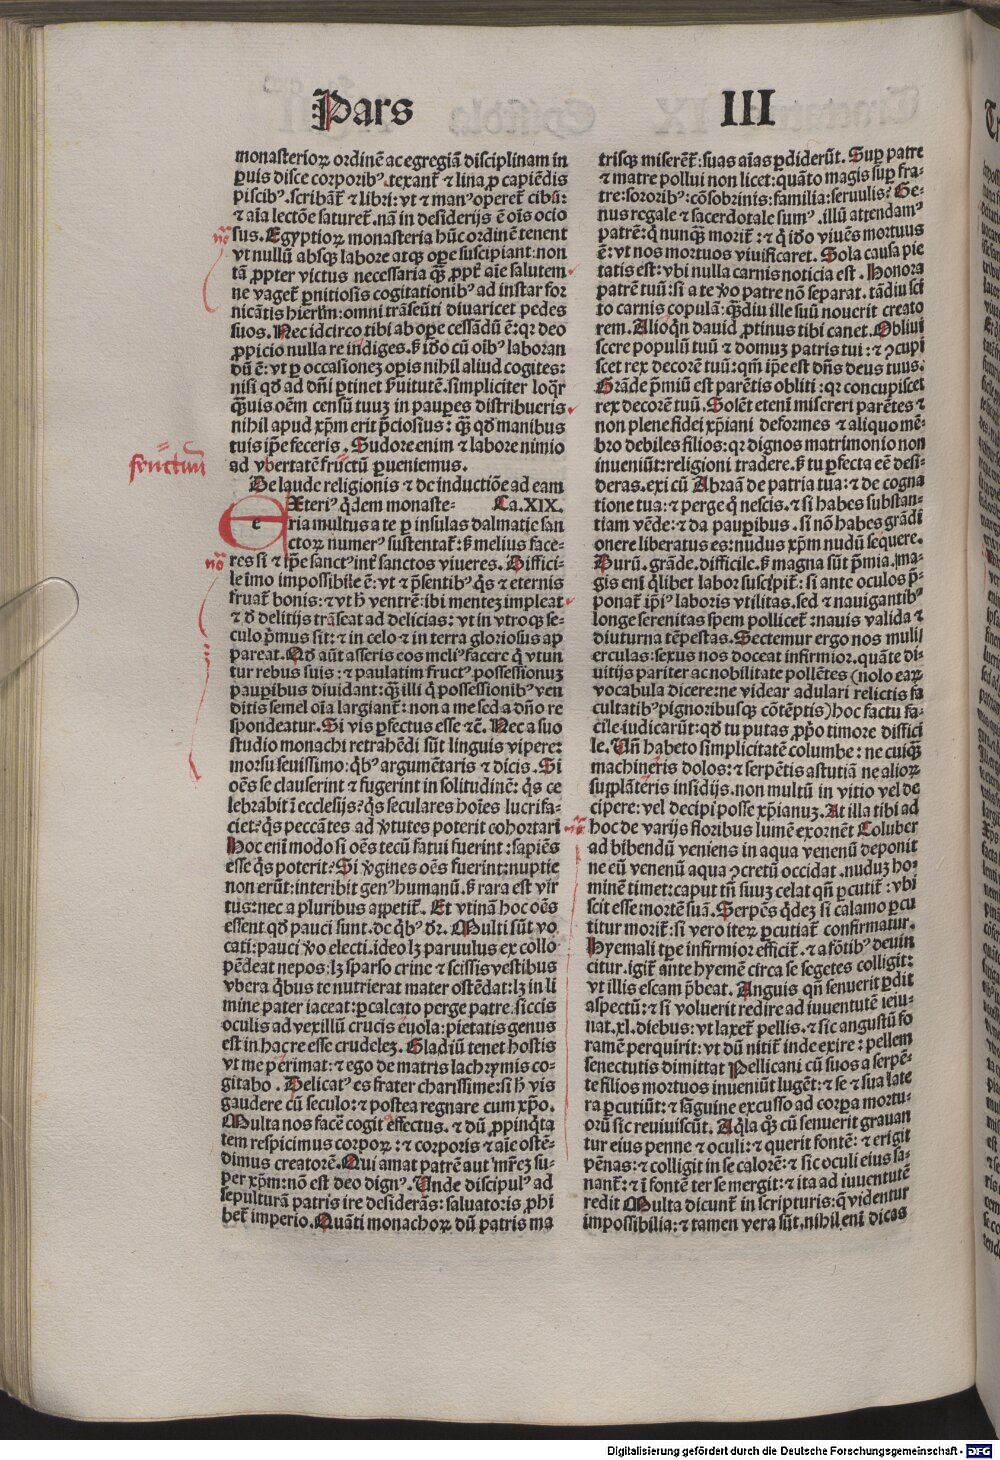 Pars III
monasterioꝝ ordinē ac egregiā disciplinam in
ꝑuis disce corporibꝰ. texant᷑ ⁊ lina ꝓ capiēdis
piscibꝰ. scribāt᷑ ⁊ libri: vt ⁊ manꝰ operet᷑ cibū:
⁊ aīa lectōe saturet᷑. nā in desiderijs ē oīs ocio
sus. Egyptioꝝ monasteria hūc ordinē tenent
vt nullū absqꝫ labore atqꝫ oꝑe suscipiant: non
tā ꝓpter victus necessaria qꝫ̄ ꝓpt᷑ aīe salutem
ne vaget᷑ ꝑnitiosis cogitationibꝰ ad instar for
nicātis hierlm̄: omni trāseūti diuaricet pedes
suos. Nec idcirco tibi ab oꝑe cessādū ē: qꝛ deo
ꝓpicio nulla re indiges. ẜ iō cū oībꝰ laboran
dū ē: vt ꝑ occasionez oꝑis nihil aliud cogites:
nisi qd̄ ad dn̄i ꝑtinet ẜuitutē. simpliciter loq̄r
qꝫ̄uis oēm censū tuuꝫ in pauꝑes distribueris
nihil apud xp̄m erit p̄ciosius: qꝫ̄ qd̄ manibus
tuis ip̄e feceris. Sudore enim ⁊ labore nimio
ad vbertatē fructū ꝑueniemus.
fructuū
De laude religionis ⁊ de inductiōe ad eam
Xteriꝰ q̇dem monaste- Ca. XIX.
e ria multus a te ꝑ insulas dalmatie san
ctoꝝ numerꝰ sustentat᷑: ẜ melius face-
res si ⁊ ip̄e sanctꝰ int᷑ sanctos viueres. Diffici-
le īmo impossibile ē: vt ⁊ p̄sentibꝰ q̇s ⁊ eternis
fruat᷑ bonis: ⁊ vt h̄ ventrē: ibi mentez impleat
⁊ d̄ delitijs trāseat ad delicias: vt in vtroqꝫ se-
culo p̄mus sit: ⁊ in celo ⁊ in terra gloriosus ap
pareat. Qd̄ aūt asseris eos meliꝰ facere q̇ vtun
tur rebus suis: ⁊ paulatim fructꝰ possessionuꝫ
pauꝑibus diuidant: qꝫ̄ illi q̇ possessionibꝰ ven
ditis semel oīa largiant᷑: non a me sed a dn̄o re
spondeatur. Si vis ꝑfectus esse ⁊c̄. Nec a suo
studio monachi retrahēdi sūt linguis vipere:
morsu seuissimo: q̇bꝰ argumētaris ⁊ dicis. Si
oēs se clauserint ⁊ fugerint in solitudinē: q̇s ce
lebrabit ecclesijs? q̇s seculares hoīes lucrifa-
ciet? q̇s peccātes ad v̓tutes poterit cohortari
Hoc enī modo si oēs tecū fatui fuerint: sapiēs
esse q̇s poterit? Si v̓gines oēs fuerint: nuptie
non erūt: interibit genꝰ humanū. ẜ rara est vir
tus: nec a pluribus appetit᷑. Et vtinā hoc oēs
essent qd̄ pauci sunt. de q̇bꝰ dr̄. Multi sūt vo
cati: pauci v̓o electi. ideo lꝫ paruulus ex collo
pēdeat nepos: lꝫ sparso crine ⁊ scissis vestibus
vbera q̇bus te nutrierat mater ostēdat: lꝫ in li
mine pater iaceat: ꝑcalcato perge patre. siccis
oculis ad vexillū crucis euola: pietatis genus
est in hac re esse crudelez. Gladiū tenet hostis
vt me perimat: ⁊ ego de matris lachrymis co-
gitabo. Delicatꝰ es frater charissime: si h̄ vis
gaudere cū seculo: ⁊ postea regnare cum xp̄o.
Multa nos facē cogit effectus. ⁊ dū ꝓpinq̄ta
tem respicimus corpoꝝ: ⁊ corporis ⁊ aīe ostē-
dimus creatorē. Qui amat patrē aut mr̄ez su-
per xp̄m: nō est deo dignꝰ. Unde discipulꝰ ad
sepulturā patris ire desiderās: saluatoris ꝓhi
bet᷑ imperio. Quāti monachoꝝ dū patris ma
trisqꝫ miserēt᷑: suas aīas ꝑdiderūt. Suꝑ patre
⁊ matre pollui non licet: quāto magis suꝑ fra-
tre: sororibꝰ: cōsobrinis: familia: seruulis? Ge-
nus regale ⁊ sacerdotale sumꝰ. illū attendamꝰ
patrē: q̇ nunqꝫ̄ morit᷑: ⁊ q̇ iō viuēs mortuus
ē: vt nos mortuos viuificaret. Sola causa pie
tatis est: vbi nulla carnis noticia est. Honora
patrē tuū: si a te v̓o patre nō separat. tādiu sci
to carnis copulā: qꝫ̄diu ille suū nouerit creato
rem. Alioq̇n dauid ꝓtinus tibi canet. Obliui
scere populū tuū ⁊ domuꝫ patris tui: ⁊ ꝯcupi
scet rex decorē tuū: qm̄ ip̄e est dn̄s deus tuus.
Grāde p̄miū est parētis obliti: qꝛ concupiscet
rex decorē tuū. Solēt etenī misereri parētes ⁊
non plene fidei xp̄iani deformes ⁊ aliquo mē-
bro debiles filios: qꝛ dignos matrimonio non
inueniūt: religioni tradere. ẜ tu ꝑfecta eē desi-
deras. exi cū Abraā de patria tua: ⁊ de cogna
tione tua: ⁊ perge q̇ nescis. ⁊ si habes substan-
tiam vēde: ⁊ da pauꝑibus. si nō habes grādi
onere liberatus es: nudus xp̄m nudū sequere.
Durū. grāde. difficile. ẜ magna sūt p̄mia. ma-
gis enī q̇libet labor suscipit᷑: si ante oculos p̄-
ponat᷑ ip̄iꝰ laboris vtilitas. sed ⁊ nauigantibꝰ
longe serenitas spem pollicet᷑: nauis valida ⁊
diuturna tēpestas. Sectemur ergo nos muli
erculas: sexus nos doceat infirmior. quāte di-
uitijs pariter ac nobilitate pollētes (nolo eaꝝ
vocabula dicere: ne videar adulari relictis fa
cultatibꝰ pignoribusqꝫ cōtēptis) hoc factu fa-
cile iudicarūt: qd̄ tu putas ꝓpo timore diffici
le. Un̄ habeto simplicitatē columbe: ne cuiqꝫ̄
machineris dolos: ⁊ serpētis astutiā ne alioꝝ
supplāteris insidijs. non multū in vitio vel de
cipere: vel decipi posse xp̄ianuꝫ. At illa tibi ad
hoc de varijs floribus lumē exornēt Coluber
ad bibendū veniens in aqua venenū deponit
ne eū venenū aqua ꝯcretū occidat. nuduꝫ ho-
minē timet: caput tn̄ suuꝫ celat qn̄ ꝑcutit᷑: vbi
scit esse mortē suā. Serpēs q̇dez si calamo ꝑcu
titur morit᷑: si vero iteꝝ ꝑcutiat᷑ confirmatur.
Hyemali tꝑe infirmior efficit᷑. ⁊ a fōtibꝰ deuin
citur. igit᷑ ante hyemē circa se segetes colligit:
vt illis escam p̄beat. Anguis qn̄ senuerit ꝑdit
aspectū: ⁊ si voluerit redire ad iuuentutē ieiu-
nat. xl. diebus: vt laxet᷑ pellis. ⁊ sic angustū fo
ramē perquirit: vt dū nitit᷑ inde exire: pellem
senectutis dimittat Pellicani cū suos a serpē-
te filios mortuos inueniūt lugēt: ⁊ se ⁊ sua late
ra ꝑcutiūt: ⁊ sāguine excusso ad corpa mortu-
orū sic reuiuiscūt. Aq̇la qꝫ̄ cū senuerit grauan
tur eius penne ⁊ oculi: ⁊ querit fontē: ⁊ erigit
pēnas: ⁊ colligit in se calorē: ⁊ sic oculi eius sa-
nant᷑: ⁊ ī fontē ter se mergit: ⁊ ita ad iuuentutē
redit Multa dicunt᷑ in scripturis: q̄ videntur
impossibilia: ⁊ tamen vera sūt. nihil enī dicas
Digitalisierung gefördert durch die Deutsche Forschungsgemeinschaft - DFG